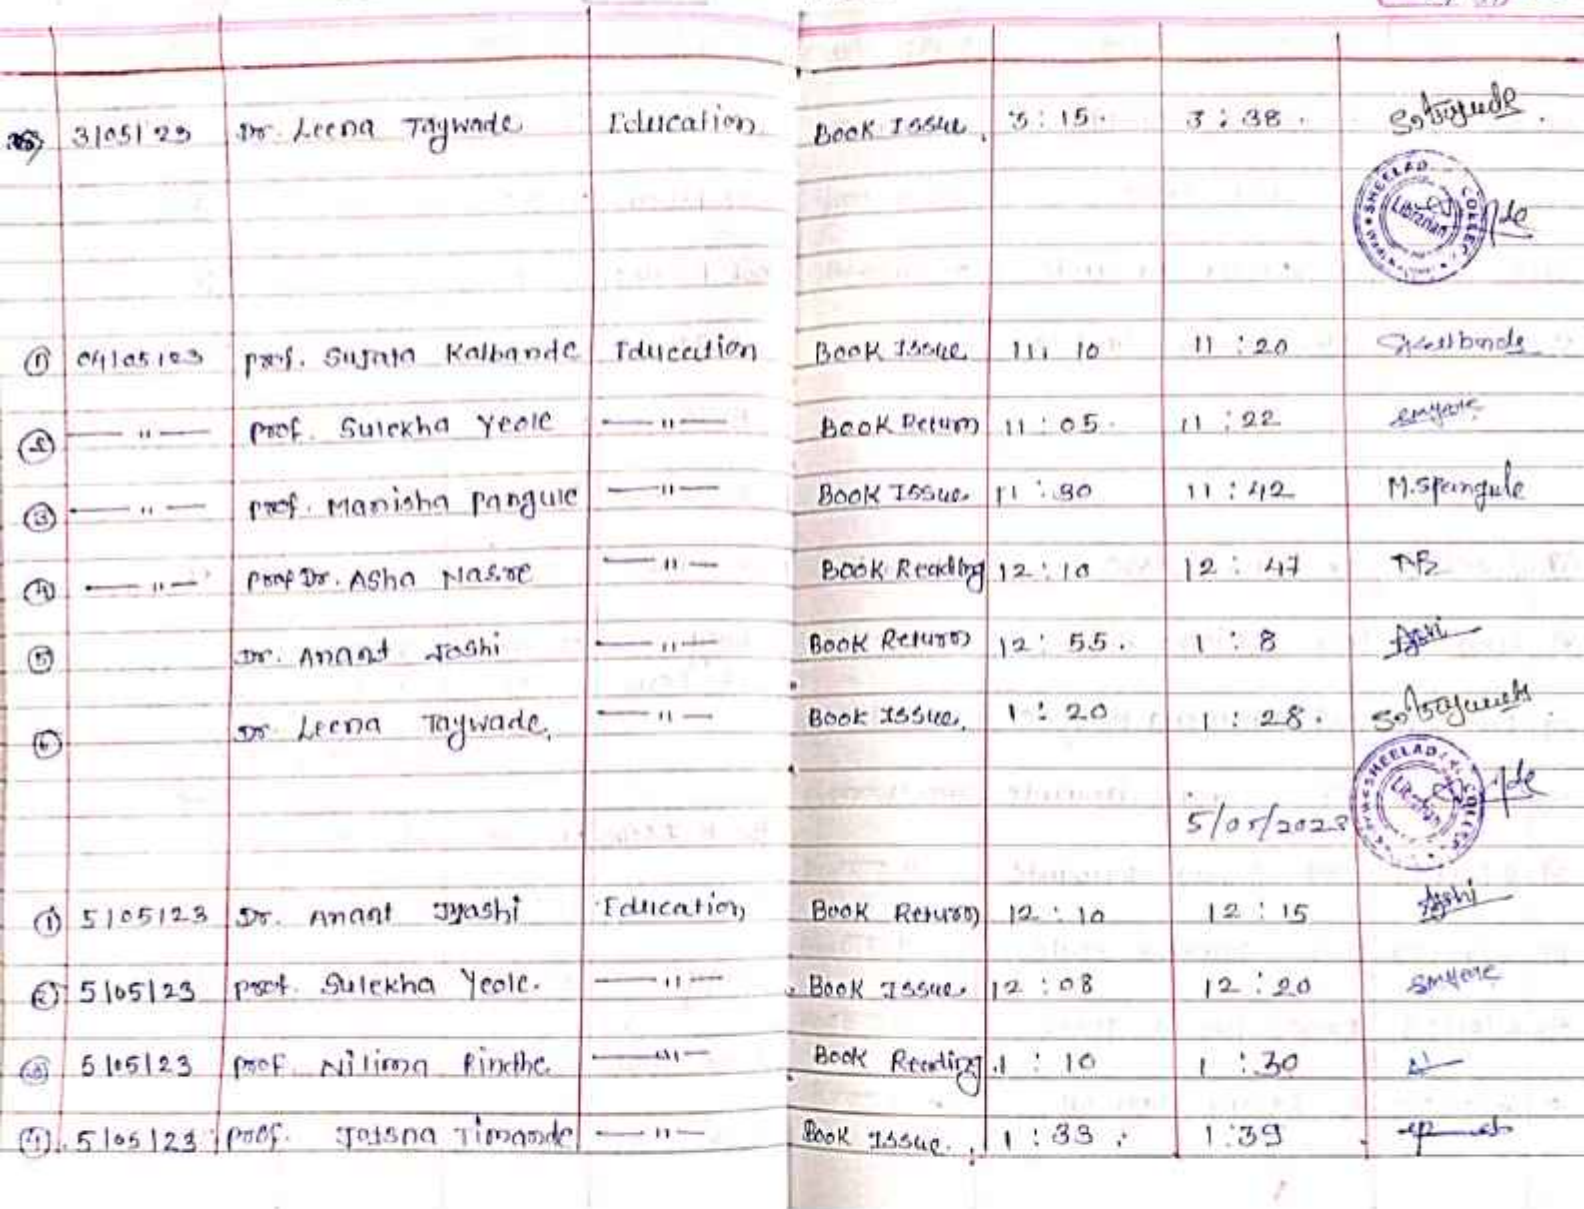 3/05/23 Dr. Leena Taywade Education Book Issue 3:15. 3:38.
SHEELAD COLLEGE
Librarian
① 04/05/23 prof. Sujata Kalbande Education Book Issue 11:10 11:20 Skalbande
② —"— prof. Sulekha Yeole —"— Book Return 11:05. 11:22 smyeole
③ —"— prof. Manisha Pangule —"— Book Issue 11:30 11:42 M.spangule
④ —"— prof Dr. Asha Nasre —"— Book Reading 12:10 12:47
⑤ Dr. Anant Joshi —"— Book Return 12:55. 1:8 Ajoshi
⑥ Dr. Leena Taywade, —"— Book Issue. 1:20 1:28.
SHEELAD COLLEGE
Librarian
5/05/2023
① 5/05/23 Dr. Anant Jyashi Education Book Return 12:10 12:15 Ajoshi
② 5/05/23 prof. Sulekha Yeole. —"— Book Issue. 12:08 12:20 smyeole
③ 5/05/23 prof. Nilima Rindhe —"— Book Reading 1:10 1:30
④ 5/05/23 prof. Jotsna Timande —"— Book Issue. 1:33 1:39